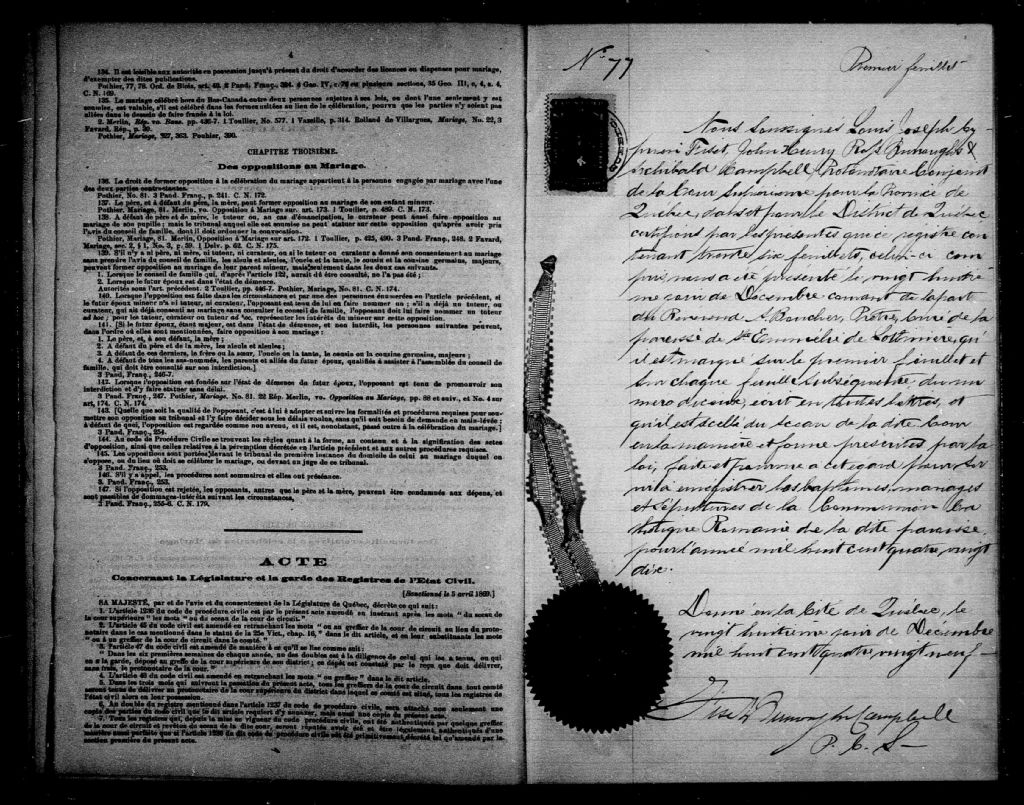 4
134. Il est loisible aux autorités en possession jusqu'à présent du droit d'accorder des licences ou dispenses pour mariage,
d'exempter des dites publications.
Pothier, 77, 78. Ord. de Blois, art. 40. 2 Pand. Franç., 394. 4 Geo. IV, c. 76 en plusieurs sections, 35 Geo. III, c, 4, s. 4,
C. N. 169.
135. Le mariage célébré hors du Bas-Canada entre deux personnes sujettes à ses lois, ou dont l'une seulement y est
soumise, est valable, s'il est célébré dans les formes usitées au lieu de la célébration, pourvu que les parties n'y soient pas
allées dans le dessein de faire fraude à la loi.
2. Merlin, Rép. vo. Bans. pp. 436-7. 1 Toullier, No. 577. 1 Vazeille, p. 314. Rolland de Villargues, Mariage, No. 22, 3
Favard, Rép., p. 39.
Pothier, Mariage, 327, 363. Pouhier, 390.
CHAPITRE TROISIÈME.
Des oppositions au Mariage.
136. Le droit de former opposition à la célébration du mariage appartient à la personne engagée par mariage avec l'une
des deux parties contractantes.
Pothier, No. 81. 3 Pand. Franç., p. 241. C. N. 172.
137. Le père, et à défaut du père, la mère, peut former opposition au mariage de son enfant mineur.
Pothier, Mariage, 81. Merlin, vo. Opposition à Mariage sur art. 173. 1 Toullier, p. 489. C. N. 173.
138. A défaut de père et de mère, le tuteur ou, au cas d'émancipation, le curateur peut aussi faire opposition au
mariage de son pupille; mais le tribunal auquel elle est soumise ne peut statuer sur cette opposition qu'après avoir pris
l'avis du conseil de famille, dont il doit ordonner la convocation.
Pothier, Mariage, 81. Merlin, Opposition à Mariage sur art. 172. 1 Toullier, p. 425, 490. 3 Pand. Franç., 248. 2 Favard,
Mariage, sec. 2, § 1, No. 3, p. 59. 1 Delv. p. 62. C. N. 175.
139. S'il n'y a ni père, ni mère, ni tuteur, ni curateur, ou si le tuteur ou curateur a donné son consentement au mariage
sans prendre l'avis du conseil de famille, les aïeuls et aïeules, l'oncle et la tante, le cousin et la cousine germains, majeurs,
peuvent former opposition au mariage de leur parent mineur, mais seulement dans les deux cas suivants.
1. Lorsque le conseil de famille qui, d'après l'article 122, aurait dû être consulté, ne l'a pas été;
2. Lorsque le futur époux est dans l'état de démence.
Autorités sous l'art. précédent. 2 Toullier, pp. 446-7. Pothier, Mariage, No. 81. C. N. 174.
140. Lorsque l'opposition est faite dans les circonstances et par une des personnes énumérées en l'article précédent, si
le futur époux mineur n'a ni tuteur, ni curateur, l'opposant est tenu de lui en faire nommer un; s'il a déjà un tuteur, ou
curateur, qui ait déjà consenti au mariage sans consulter le conseil de famille, l'opposant doit lui faire nommer un tuteur
ad hoc; pour les tuteur, curateur ou tuteur ad hoc, représenter les intérêts du mineur sur cette opposition.
141. [Si le futur époux, étant majeur, est dans l'état de démence, et non interdit, les personnes suivantes peuvent,
dans l'ordre où elles sont mentionnées, faire opposition à son mariage:
1. Le père, et, à son défaut, la mère;
2. A défaut du père et de la mère, les aïeuls et aïeules;
3. A défaut de ces derniers, le frère ou la sœur, l'oncle ou la tante, le cousin ou la cousine germains, majeurs;
4. A défaut de tous les sus-nommés, les parents et alliés du futur époux, qualifiés à assister à l'assemblée du conseil de
famille, qui doit être consulté sur son interdiction.]
3 Pand. Franç., 246-7.
142. Lorsque l'opposition est fondée sur l'état de démence du futur époux, l'opposant est tenu de promouvoir son
interdiction et d'y faire statuer sans délai.
3 Pand. Franç., 247. Pothier, Mariage, No. 81. 22 Rép. Merlin, vo. Opposition au Mariage, pp. 88 et suiv., et No. 4 sur
art, 174. C. N. 174.
143. [Quelque que soit la qualité de l'opposant, c'est à lui à adopter et suivre les formalités et procédures requises pour sou-
mettre son opposition au tribunal et l'y faire décider sous les délais voulus, sans qu'il soit besoin de demande en main-levée;
à défaut de quoi, l'opposition est regardée comme non avenue, et il est, nonobstant, passé outre à la célébration du mariage.]
3 Pand. Franç., 254.
144. Au code de Procédure Civile se trouvent les règles quant à la forme, au contenu et à la signification des actes
d'opposition, ainsi que celles relatives à la péremption décrétée en l'article précédent et aux autres procédures requises.
145. Les oppositions sont portées devant le tribunal de première instance du domicile de celui au mariage duquel on
s'oppose, ou du lieu où doit se célébrer le mariage, ou devant un juge de ce tribunal.
3 Pand. Franç., 253.
146. S'il y a appel, les procédures sont sommaires et elles ont préséance.
3. Pand. Franç., 253.
147. Si l'opposition est rejetée, les opposants, autres que le père et la mère, peuvent être condamnés aux dépens, et
sont passibles de dommages-intérêts suivant les circonstances.
3 Pand. Franç., 255-6. C. N. 179.
ACTE
Concernant la Législature et la garde des Registres de l'Etat Civil.
[Sanctionné le 5 avril 1869.]
SA MAJESTÉ, par et de l'avis et du consentement de la Législature de Québec, décrète ce qui suit:
1. L'article 1236 du code de procédure civile est par le présent acte amendé en insérant après les mots "du sceau de
la cour supérieure" les mots "ou du sceau de la cour de circuit."
2. L'article 45 du code civil est amendé en retranchant les mots "ou au greffier de la cour de circuit au lieu du proto-
notaire dans le cas mentionné dans le statut de la 25e Vict., chap. 16," dans le dit article, et en leur substituant les mots
"ou à un greffier de la cour de circuit dans le comté."
3. L'article 47 du code civil est amendé de manière à ce qu'il se lise comme suit:
"Dans les six premières semaines de chaque année, un des doubles est à la diligence de celui qui les a tenus, ou qui
en a la garde, déposé au greffe de la cour supérieure de son district; ce dépôt est constaté par le reçu que doit délivrer,
sans frais, le protonotaire de la cour."
4. L'article 48 du code civil est amendé en retranchant les mots "ou greffier" dans le dit article.
5. Dans les trois mois qui suivront la passation du présent acte, tous les greffiers de la cour de circuit dans tout comté
seront tenus de délivrer au protonotaire de la cour supérieure du district dans lequel ce comté est situé, tous les registres de
l'état civil alors en leur possession.
6. Au double du registre mentionné dans l'article 1237 du code de procédure civile, sera attaché non seulement une
copie des parties du code civil que le dit article requiert d'y annexer, mais aussi une copie du présent acte.
7. Tous les registres qui, depuis la mise en vigueur du code procédure civile, ont été authentiqués par quelque greffier
de la cour de circuit et revêtus du sceau de la dite cour, seront réputés avoir été et être légalement authentiqués d'une
manière aussi parfaite que si l'article 1236 du dit code de procédure civile eût été primitivement décrété tel qu'amendé par la
section première du présent acte.
No. 77
Premier feuillet
Nous Soussignés Louis Joseph Cy-
prien Fiset, John Henry Ross Burroughs &
Archibald Campbell, Protonotaire Conjoint
de la Cour Supérieure pour la Province de
Québec, dans et pour le District de Québec
certifions par les présentes que ce registre con
tenant trente six feuillets, celui-ci com
pris, nous a été présenté le vingt huitiè
me jour de Décembre courant de la part
du Révérend A. Boucher, Prêtre, Curé de la
paroisse de St Emmélie de Lotbinière, qu'
il est marqué sur le premier feuillet et
sur chaque feuillet subséquent du nu
méro d'icelui, écrit en toutes lettres, et
qu'il est scellé du sceau de la dite Cour
en la manière et forme prescrites par la
loi, faite et pourvue à cet égard pour ser
vir à enregistrer les baptêmes, mariages
et sépultures de la Communion Ca
tholique Romaine de la dite paroisse
pour l'année mil huit cent quatre vingt
dix.
Donné en la Cité de Québec, le
vingt huitième jour de Décembre
mil huit cent quatre vingt neuf
Fiset Burroughs Campbell
P. C. S.